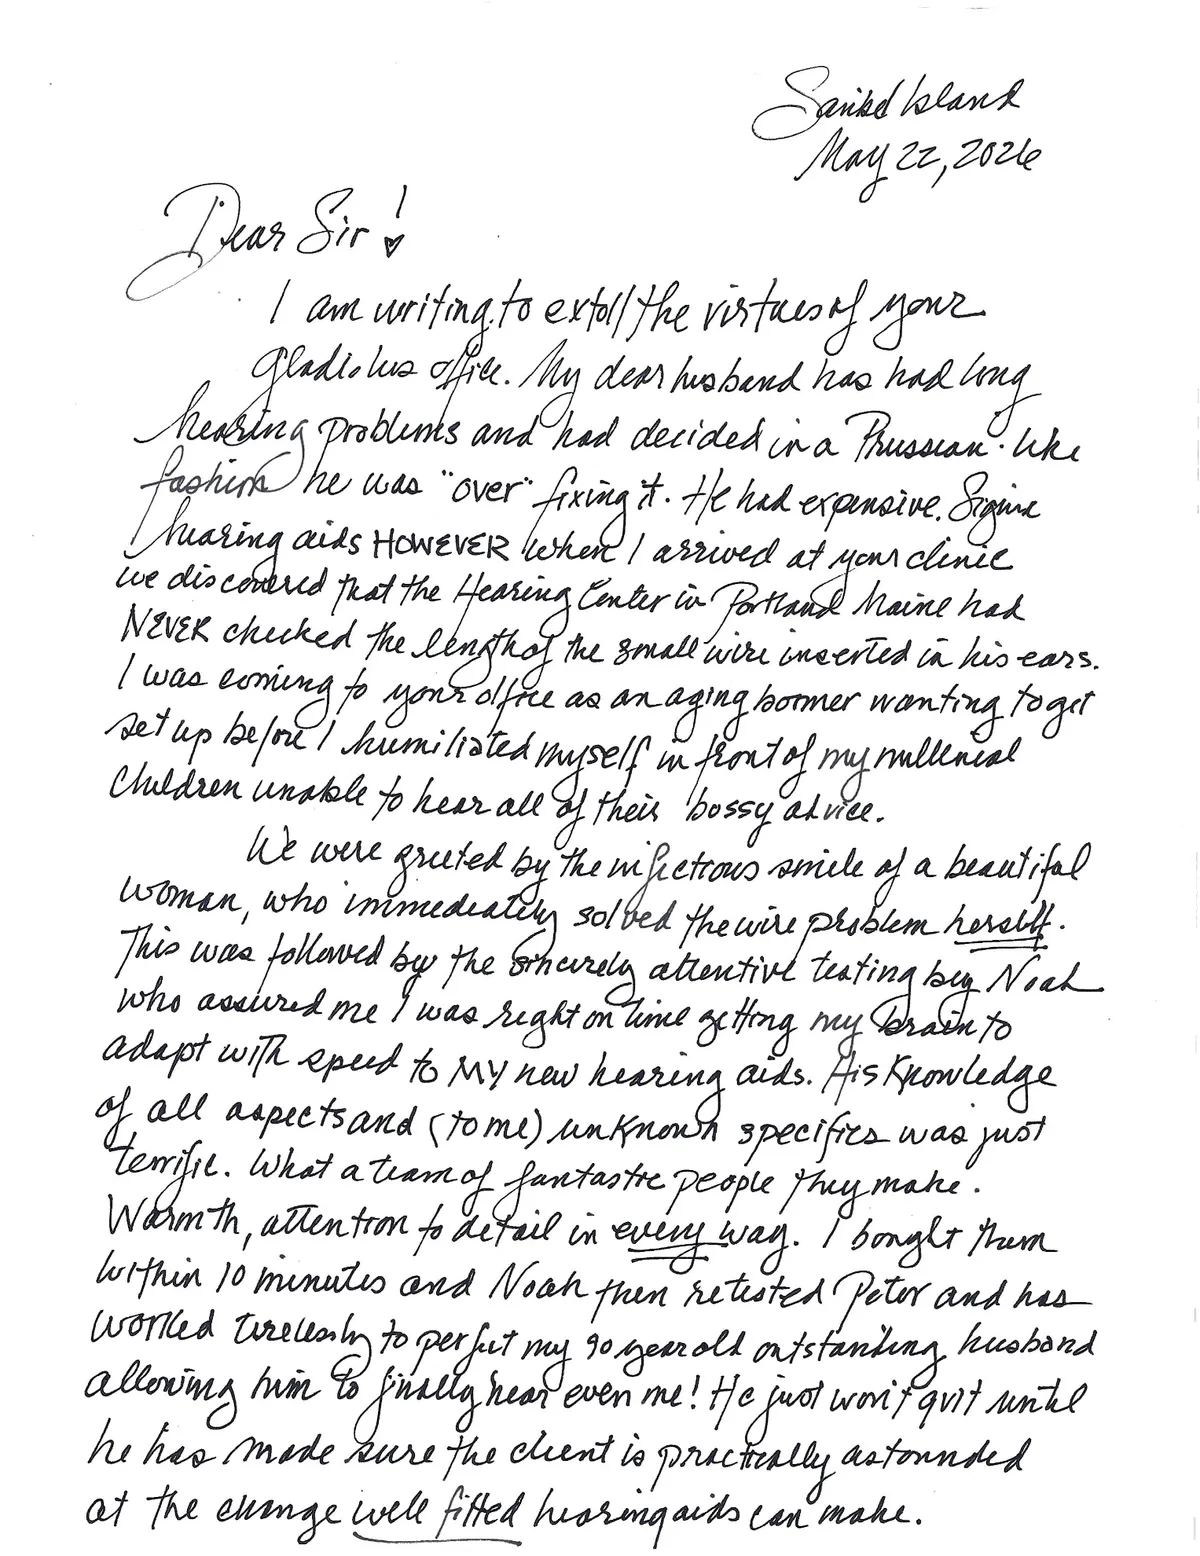 Sanibel Island
May 22, 2026
Dear Sir!
I am writing to extoll the virtues of your
Gladiolus office. My dear husband has had long
hearing problems and had decided in a Prussian-like
fashion he was "over" fixing it. He had expensive Signia
hearing aids HOWEVER when I arrived at your clinic
we discovered that the Hearing Center in Portland Maine had
NEVER checked the length of the small wire inserted in his ears.
I was coming to your office as an aging boomer wanting to get
set up before I humiliated myself in front of my millenial
children unable to hear all of their bossy advice.
We were greeted by the infectious smile of a beautiful
woman, who immediately solved the wire problem herself.
This was followed by the sincerely attentive testing by Noah
who assured me I was right on time getting my brain to
adapt with speed to MY new hearing aids. His knowledge
of all aspects and (to me) unknown specifics was just
terrific. What a team of fantastic people they make.
Warmth, attention to detail in every way. I bought them
within 10 minutes and Noah then retested Peter and has
worked tirelessly to perfect my 90 year old outstanding husband
allowing him to finally hear even me! He just won't quit until
he has made sure the client is practically astounded
at the change well fitted hearing aids can make.